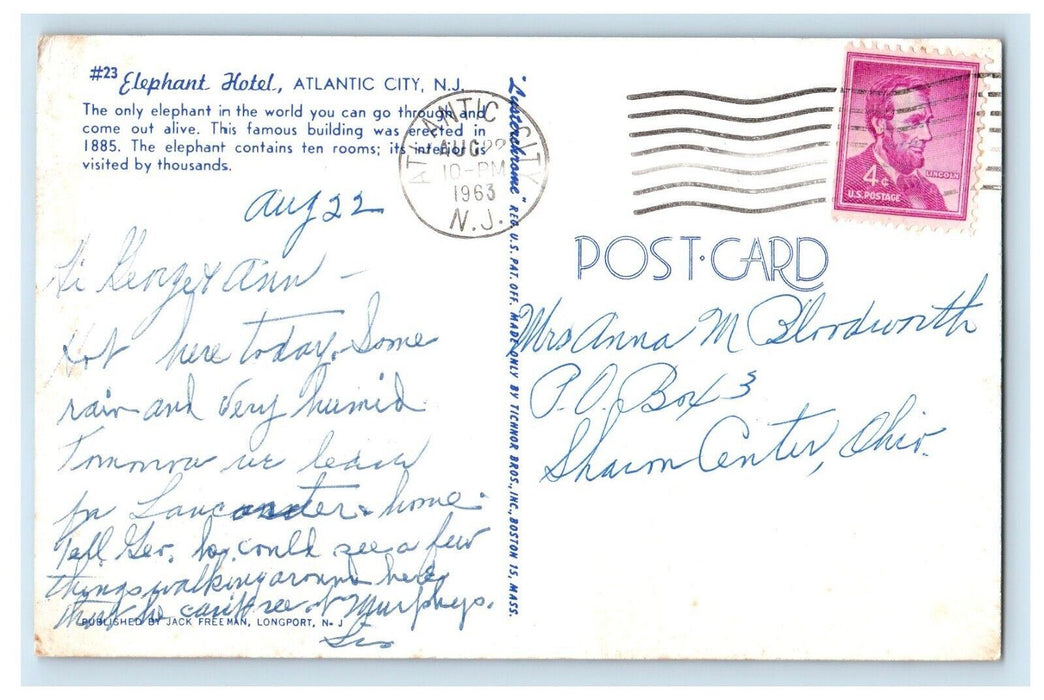 #23 Elephant Hotel, ATLANTIC CITY, N.J.
The only elephant in the world you can go through and
come out alive. This famous building was erected in
1885. The elephant contains ten rooms; its interior is
visited by thousands.
Aug 22
Hi George & Ann –
Hot here today. Some
rain and very humid
Tomorrow we leave
for Lancaster & home.
Tell Geo. he could see a few
things walking around here
that he can't see at Murphys.
Sis
PUBLISHED BY JACK FREEMAN, LONGPORT, N. J
"Lusterchrome" REG. U.S. PAT. OFF. MADE ONLY BY TICHNOR BROS., INC., BOSTON 15, MASS.
ATLANTIC CITY
AUG 22
10-PM
1963
N.J.
4¢
LINCOLN
U.S. POSTAGE
POST-CARD
Mrs Anna M Bloodworth
P.O. Box 3
Sharon Center, Ohio.